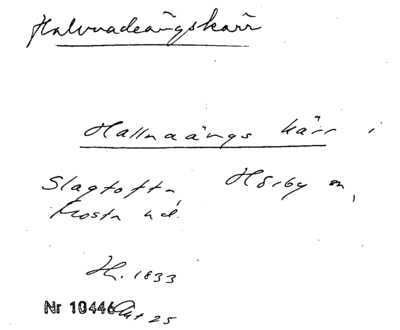 Halvnadeängskärr
Hallnaängs kärr i
Slagtofta, Hörby sn,
Frosta hd.
H. 1833
Nr 10446 Akt 25